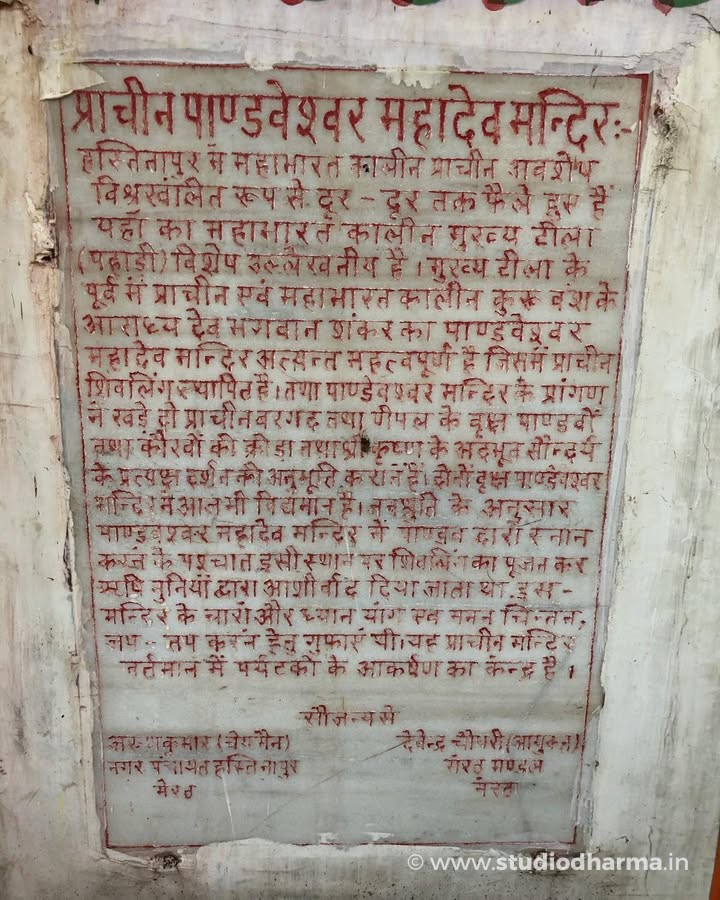 प्राचीन पाण्डवेश्वर महादेव मन्दिरः-
हस्तिनापुर में महाभारत कालीन प्राचीन अवशेष
विश्रखंलित रूप से दूर - दूर तक फैले हुए हैं
यहाँ का महाभारत कालीन मुख्य टीला
(पहाड़ी) विशेष उल्लेखनीय है । मुख्य टीला के
पूर्व में प्राचीन एवं महाभारत कालीन कुरू वंश के
आराध्य देव भगवान शंकर का पाण्डवेश्वर
महादेव मन्दिर अत्यन्त महत्वपूर्ण है जिसमें प्राचीन
शिवलिंग स्थापित है। तथा पाण्डेवश्वर मन्दिर के प्रांगण
में खड़े दो प्राचीन बरगद तथा पीपल के वृक्ष पाण्डवों
तथा कौरवों की क्रीडा तथा श्री कृष्ण के अदभूत सौन्दर्य
के प्रत्यक्ष दर्शन की अनुभूति कराते हैं। दोनों वृक्ष पाण्डेवश्वर
मन्दिर में आज भी विद्यमान है। जनश्रुति के अनुसार
पाण्डवेश्वर महादेव मन्दिर में पाण्डव द्वारा स्नान
करने के पश्चात इसी स्थान पर शिवलिंग का पूजन कर
ऋषि मुनियों द्वारा आशीर्वाद दिया जाता था. इस -
मन्दिर के चारों और ध्यान योग एवं मनन चिन्तन,
जप - तप करने हेतु गुफाएं थी। यह प्राचीन मन्दिर
वर्तमान में पर्यटकों के आकर्षण का केन्द्र है ।
सौजन्य से
अरुणकुमार (चेयरमैन) देवेन्द्र चौधरी (आयुक्त)
नगर पंचायत हस्तिनापुर मेरठ मण्डल
मेरठ मेरठ
© www.studiodharma.in